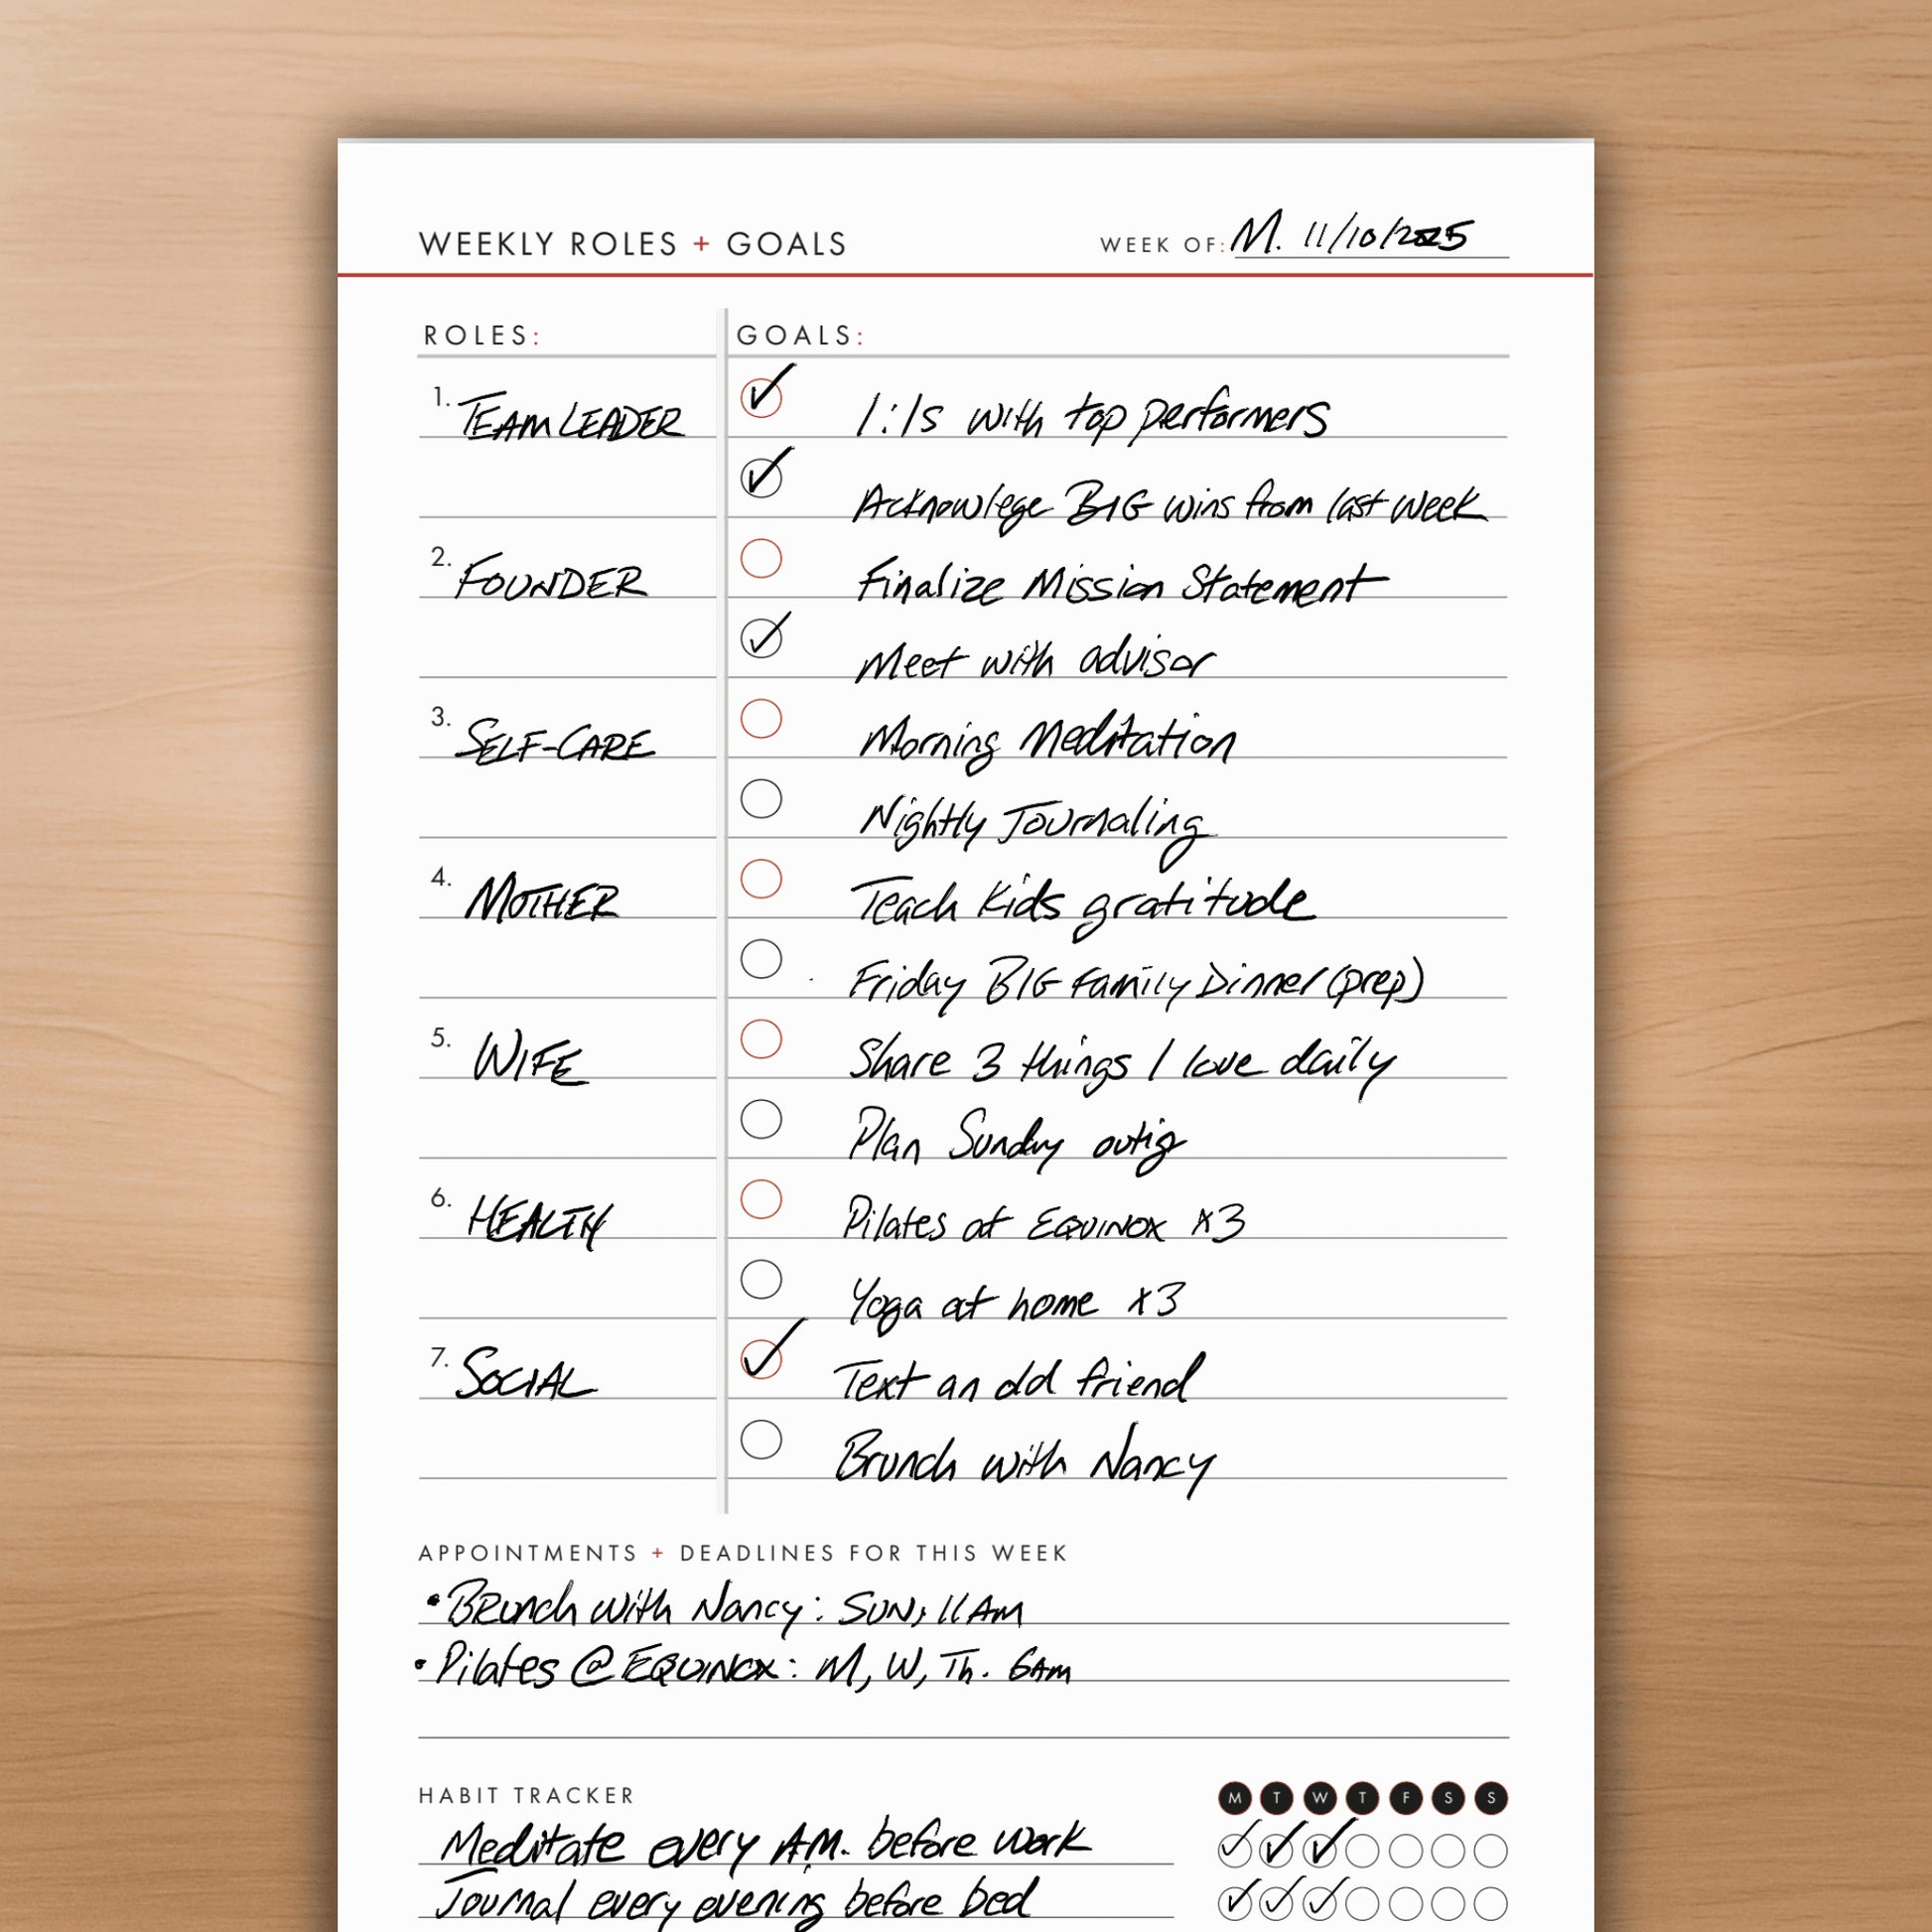 WEEKLY ROLES + GOALS
WEEK OF: M. 11/10/2025
ROLES:
GOALS:
1. TEAM LEADER
1:1s with top performers
Acknowlege BIG wins from last week
2. FOUNDER
Finalize Mission Statement
Meet with advisor
3. SELF-CARE
Morning Meditation
Nightly Journaling
4. MOTHER
Teach Kids gratitude
Friday BIG Family Dinner (prep)
5. WIFE
Share 3 things I love daily
Plan Sunday outig
6. HEALTH
Pilates at EQUINOX x3
Yoga at home x3
7. SOCIAL
Text an old friend
Brunch with Nancy
APPOINTMENTS + DEADLINES FOR THIS WEEK
• Brunch with Nancy: SUN, 11AM
• Pilates @ EQUINOX: M, W, Th. 6am
HABIT TRACKER
M T W T F S S
Meditate every A.M. before work
Journal every evening before bed